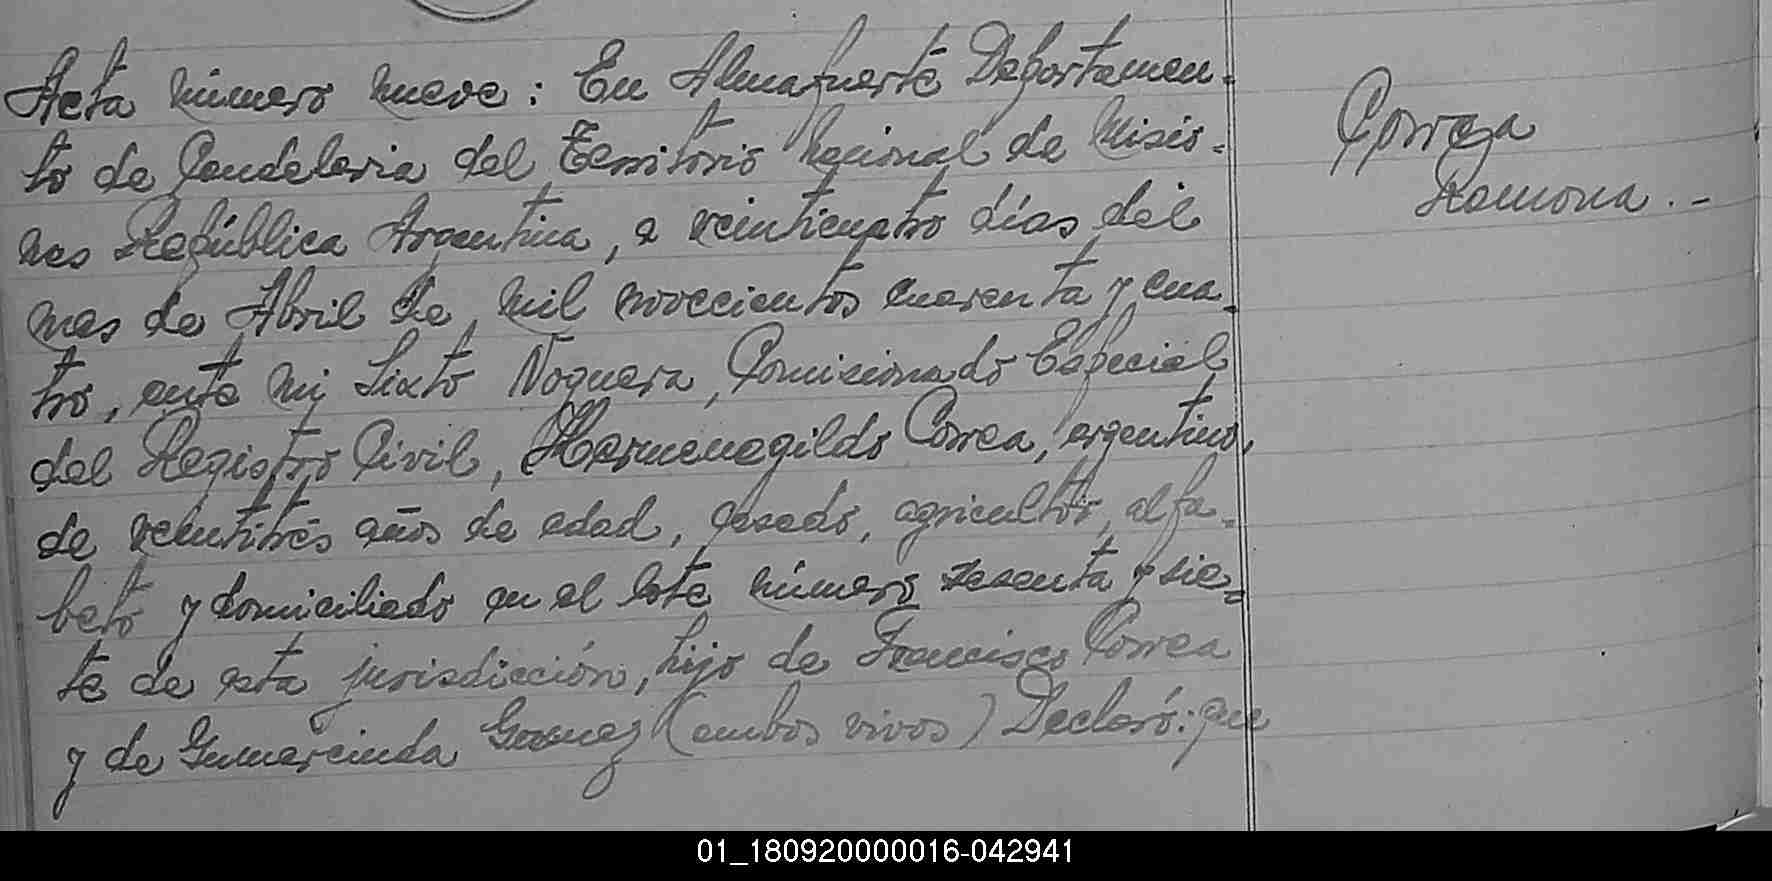 Acta número nueve: En Almafuerte Departamen-
to de Candelaria del Territorio Nacional de Misio=
nes República Argentina, a veinticuatro días del
mes de Abril de mil novecientos cuarenta y cua-
tro, ante mi Sixto Noguera, Comisionado Especial
del Registro Civil, Hermenegildo Correa, argentino,
de veintitrés años de edad, casado, agricultor, alfa-
beto y domiciliado en el lote número sesenta y sie=
te de esta jurisdicción, hijo de Francisco Correa
y de Gumercinda Gomez (ambos vivos) Declaró: que
Correa
Ramona.-
01_180920000016-042941